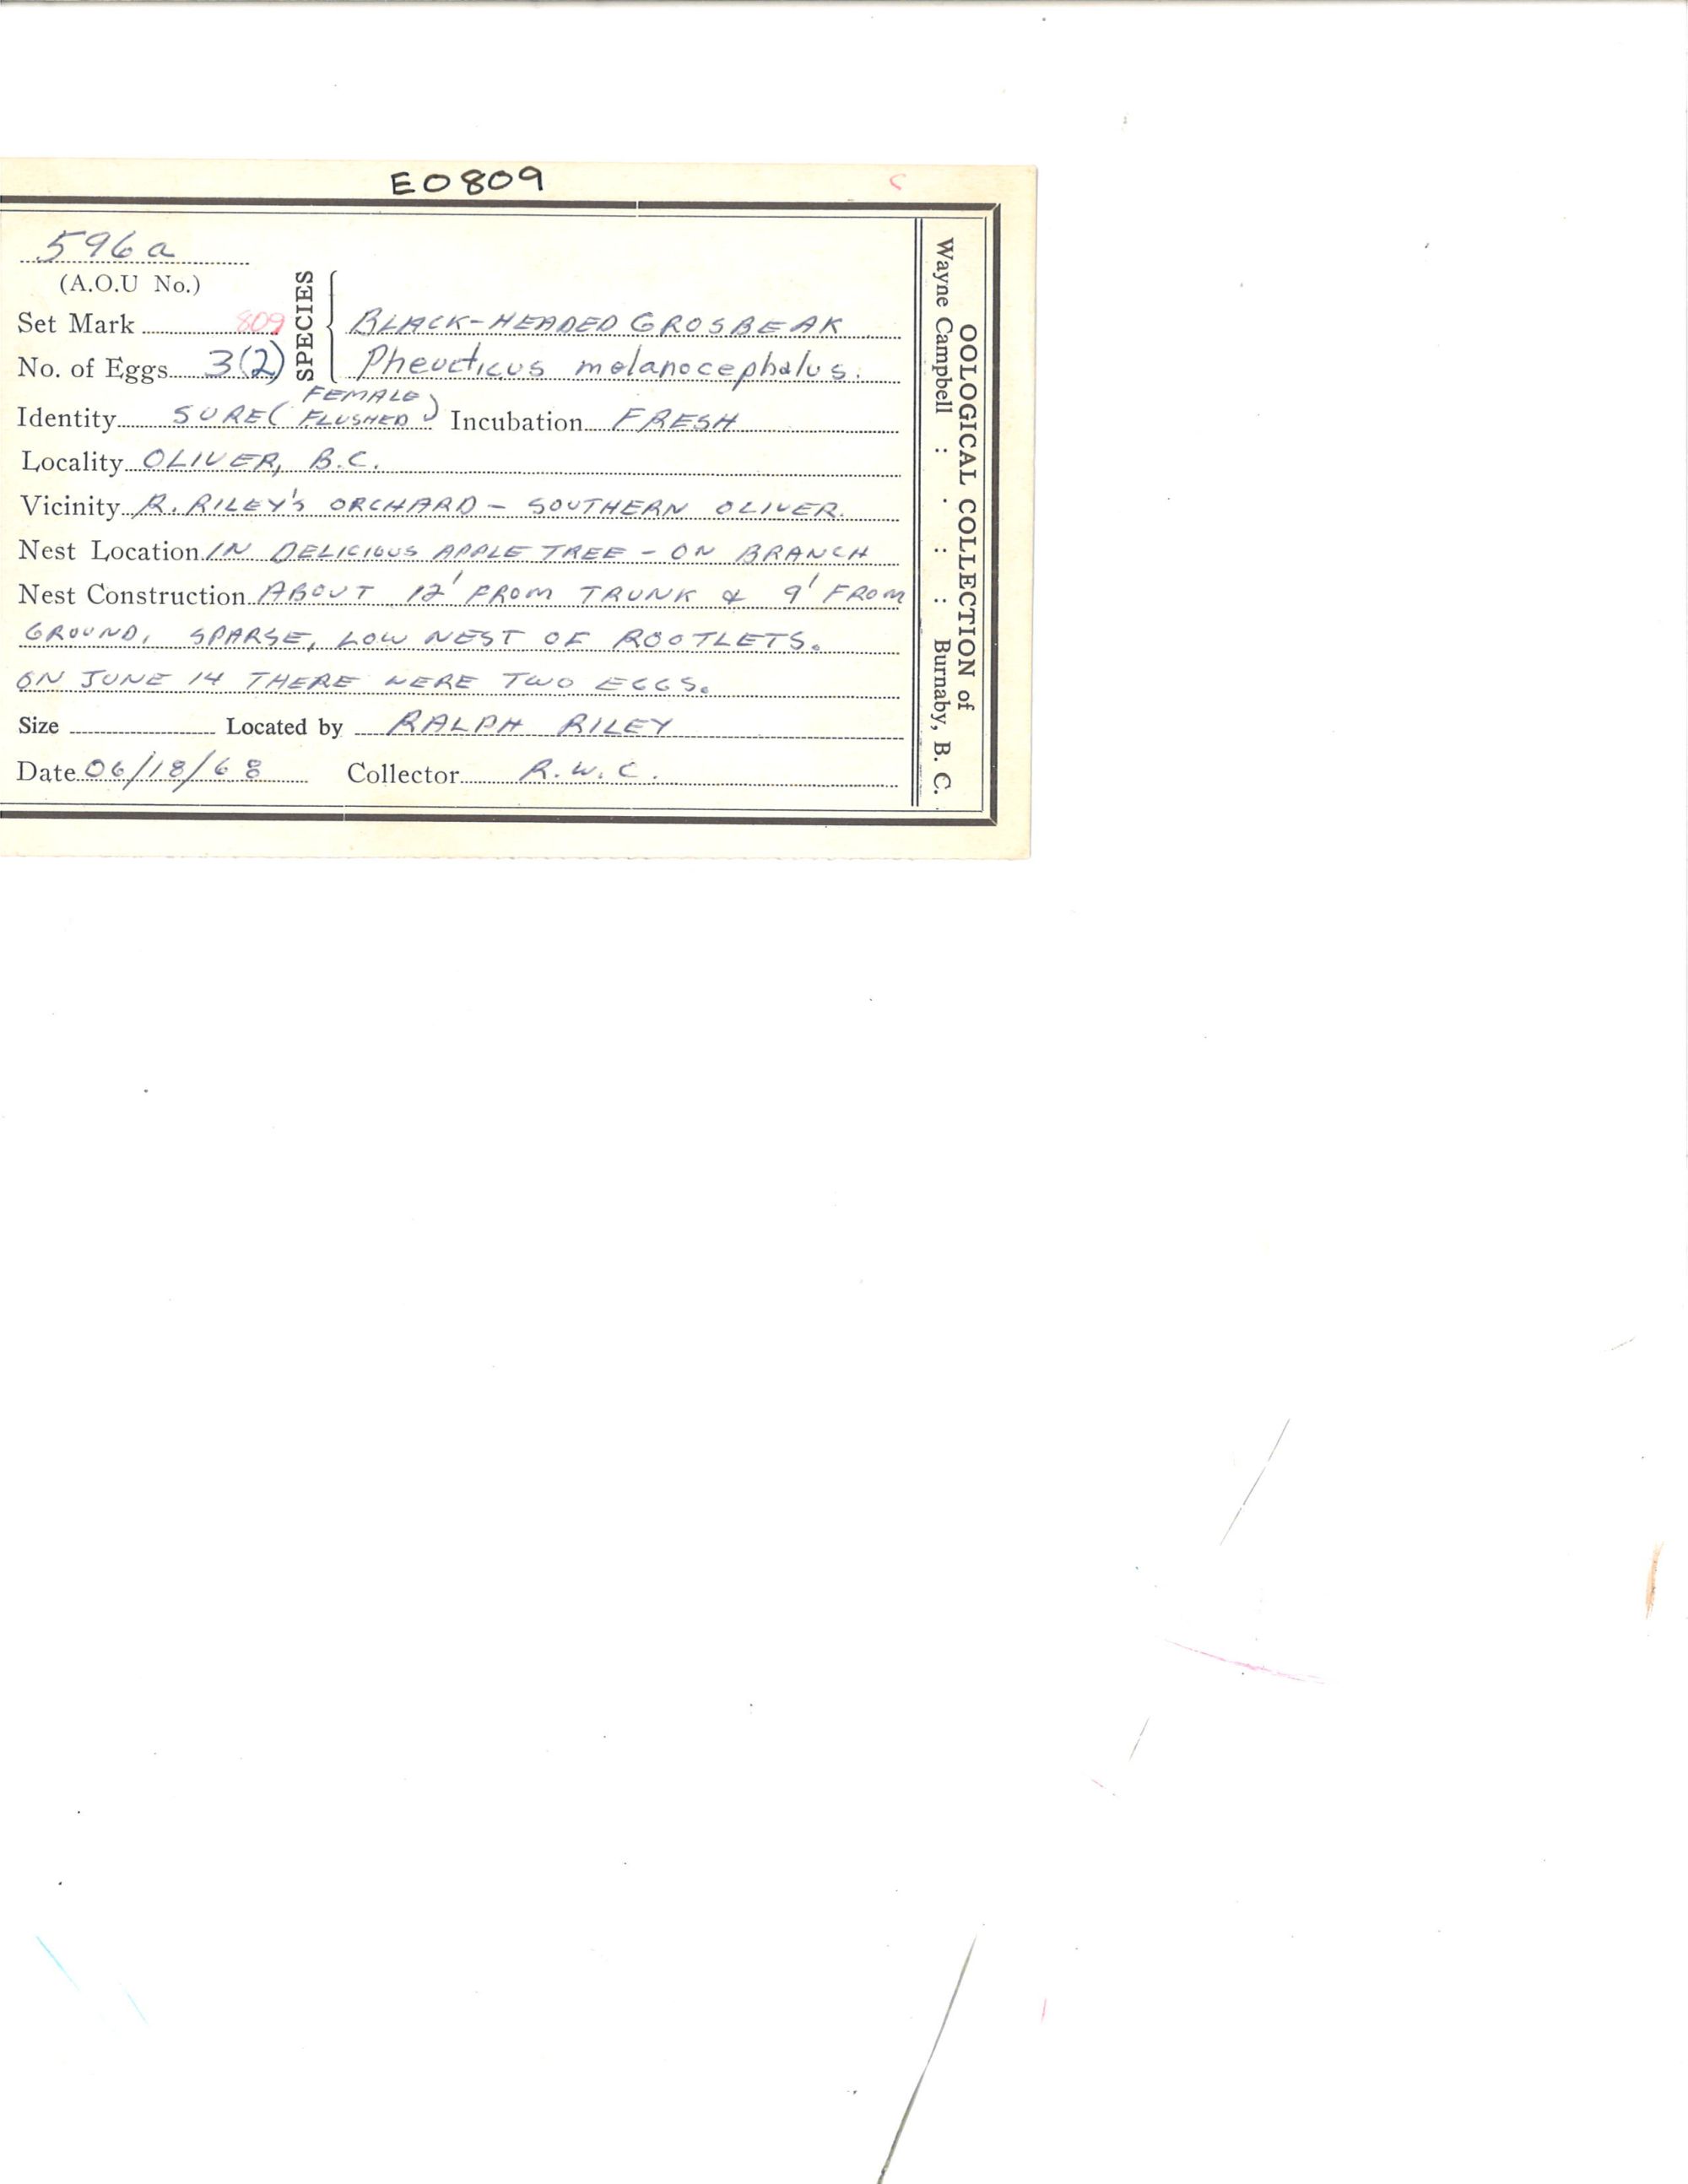 E0809
C
596a
(A.O.U No.)
Set Mark 809
No. of Eggs 3(2)
SPECIES
BLACK-HEADED GROSBEAK
Pheucticus melanocephalus.
Identity SURE (FEMALE FLUSHED) Incubation FRESH
Locality OLIVER, B.C.
Vicinity R. RILEY'S ORCHARD - SOUTHERN OLIVER.
Nest Location IN DELICIOUS APPLE TREE - ON BRANCH
Nest Construction ABOUT 12' FROM TRUNK & 9' FROM
GROUND. SPARSE, LOW NEST OF ROOTLETS.
ON JUNE 14 THERE WERE TWO EGGS.
Size Located by RALPH RILEY
Date 06/18/68 Collector R.W.C.
OOLOGICAL COLLECTION of
Wayne Campbell : . : : Burnaby, B. C.